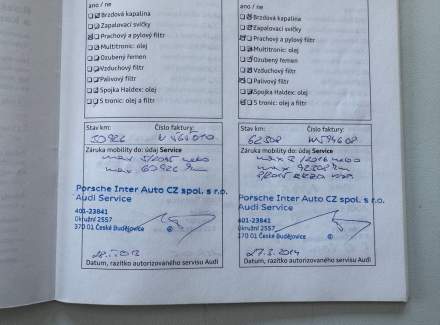 ano / ne
Brzdová kapalina
Zapalovací svíčky
Prachový a pylový filtr
Multitronic: olej
Ozubený řemen
Vzduchový filtr
Palivový filtr
Spojka Haldex: olej
S tronic: olej a filtr
Stav km: Číslo faktury:
Záruka mobility do: údaj Service
max
max
Porsche Inter Auto CZ spol. s r.o.
Audi Service
401-23841
Okružní 2557
370 01 České Budějovice
Datum, razítko autorizovaného servisu Audi
ano / ne
Brzdová kapalina
Zapalovací svíčky
Prachový a pylový filtr
Multitronic: olej
Ozubený řemen
Vzduchový filtr
Palivový filtr
Spojka Haldex: olej
S tronic: olej a filtr
Stav km: Číslo faktury:
62508
Záruka mobility do: údaj Service
max
max
Porsche Inter Auto CZ spol. s r.o.
Audi Service
401-23841
Okružní 2557
370 01 České Budějovice
27.3.2014
Datum, razítko autorizovaného servisu Audi